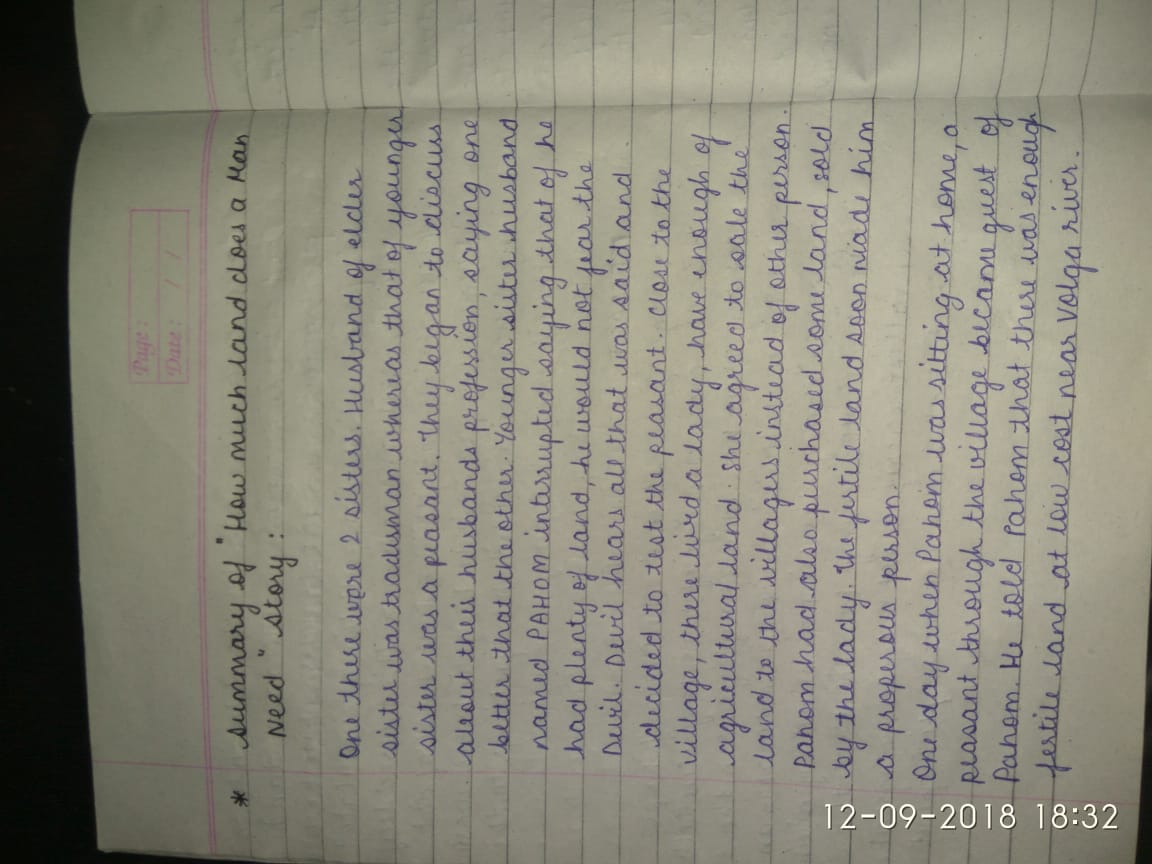 Page :
Date : / /
* Summary of "How much land does a Man
Need" story :
One there were 2 sisters. Husband of elder
sister was tradesman whereas that of younger
sister was a peasant. They began to discuss
about their husbands profession, saying one
better that the other. Younger sister husband
named PAHOM interrupted saying that of he
had plenty of land, he would not fear the
Devil. Devil hears all that was said and
decided to test the peasant. Close to the
village, there lived a lady, have enough of
agricultural land. She agreed to sale the
land to the villagers instead of other person.
Pahom had also purchased some land, sold
by the lady. The fertile land soon made him
a properous person.
One day when Pahom was sitting at home, a
peasant through the village became guest of
Pahom. He told Pahom that there was enough
fertile land at low cost near Volga river.
12-09-2018 18:32